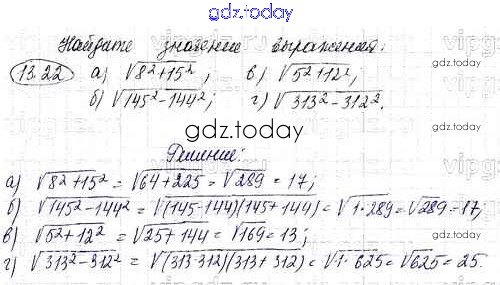 gdz.today
Найдите значение выражения:
13.22 а) √8²+15²; в) √5²+12²;
б) √145²-144²; г) √313²-312².
gdz.today
Решение:
а) √8²+15² = √64+225 = √289 = 17;
б) √145²-144² = √(145-144)(145+144) = √1·289 = √289 = 17;
в) √5²+12² = √25+144 = √169 = 13;
г) √313²-312² = √(313-312)(313+312) = √1·625 = √625 = 25.
gdz.today